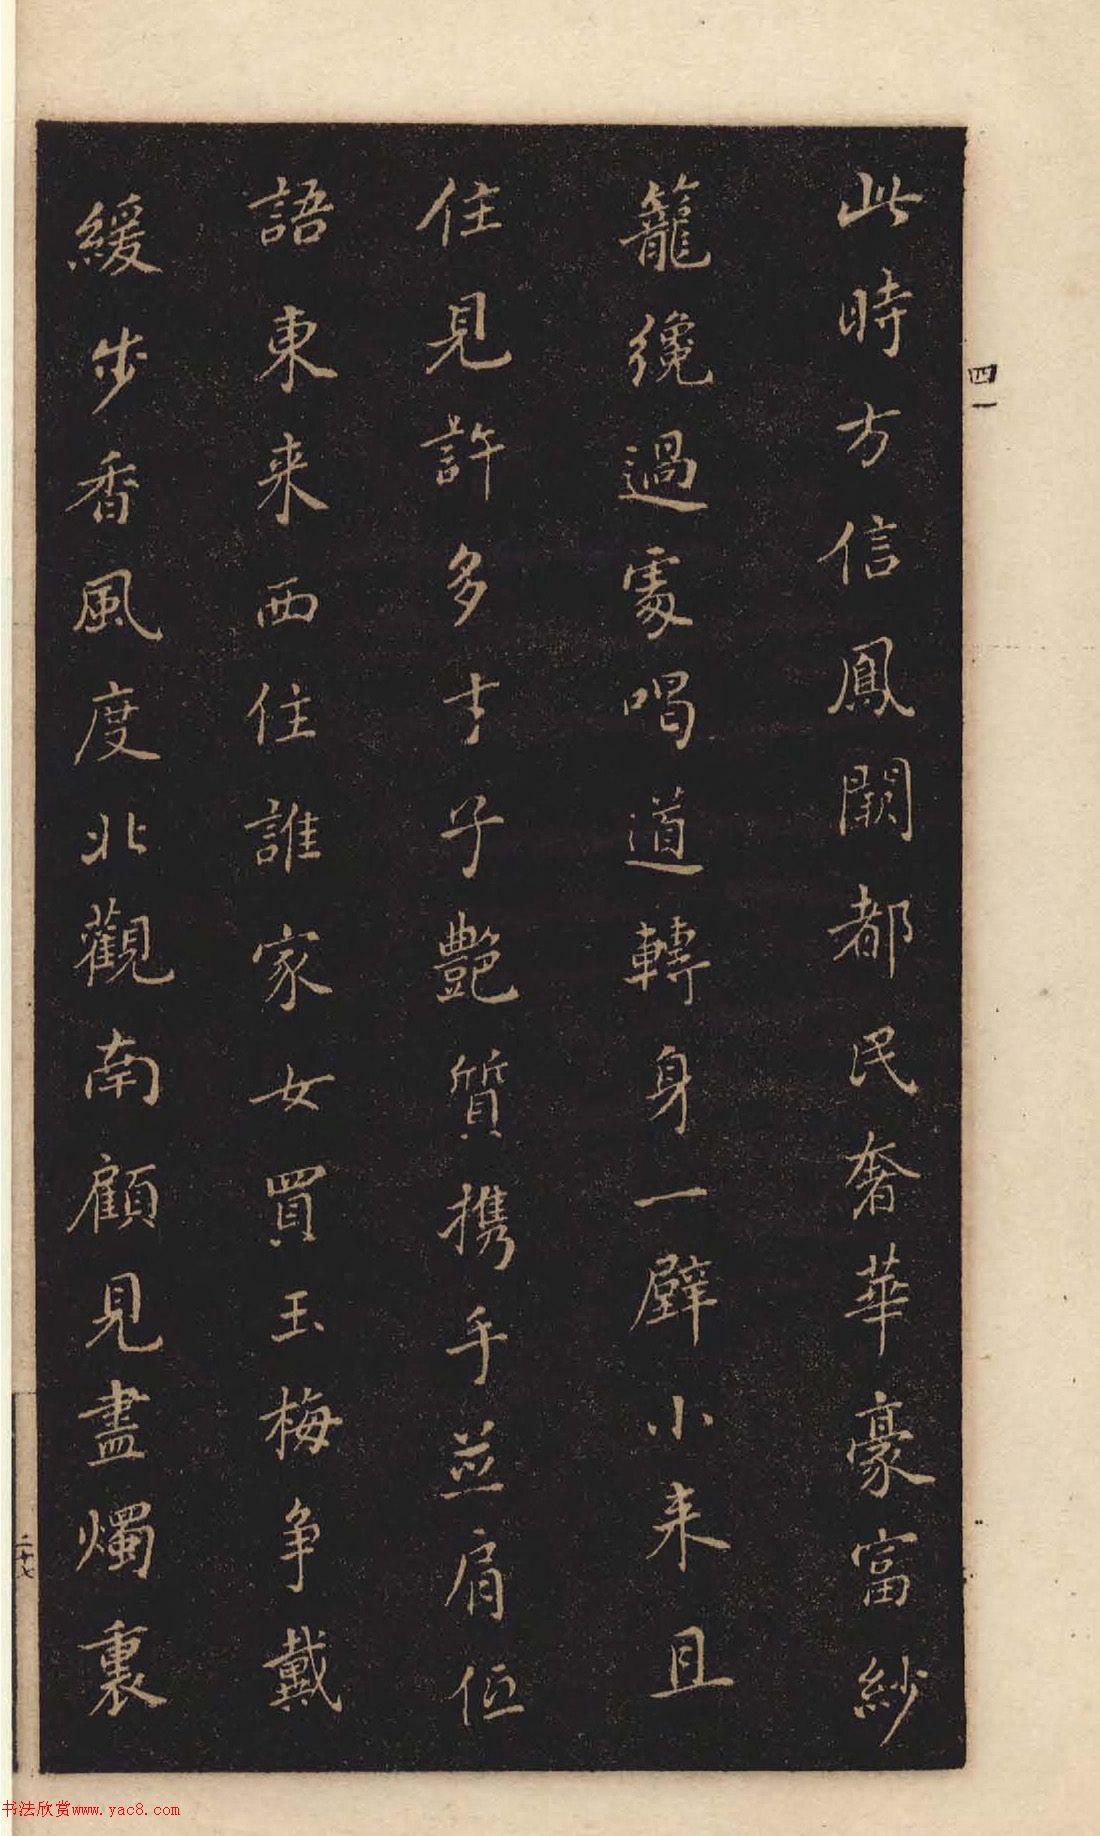 此時方信鳳闕都民奢華豪富紗
籠纔過處喝道轉身一壁小来且
住見許多才子艷質携手並肩低
語東来西住誰家女買玉梅争戴
緩步香風度北觀南顧見畫燭裏
四一
二十七
书法欣赏www.yac8.com